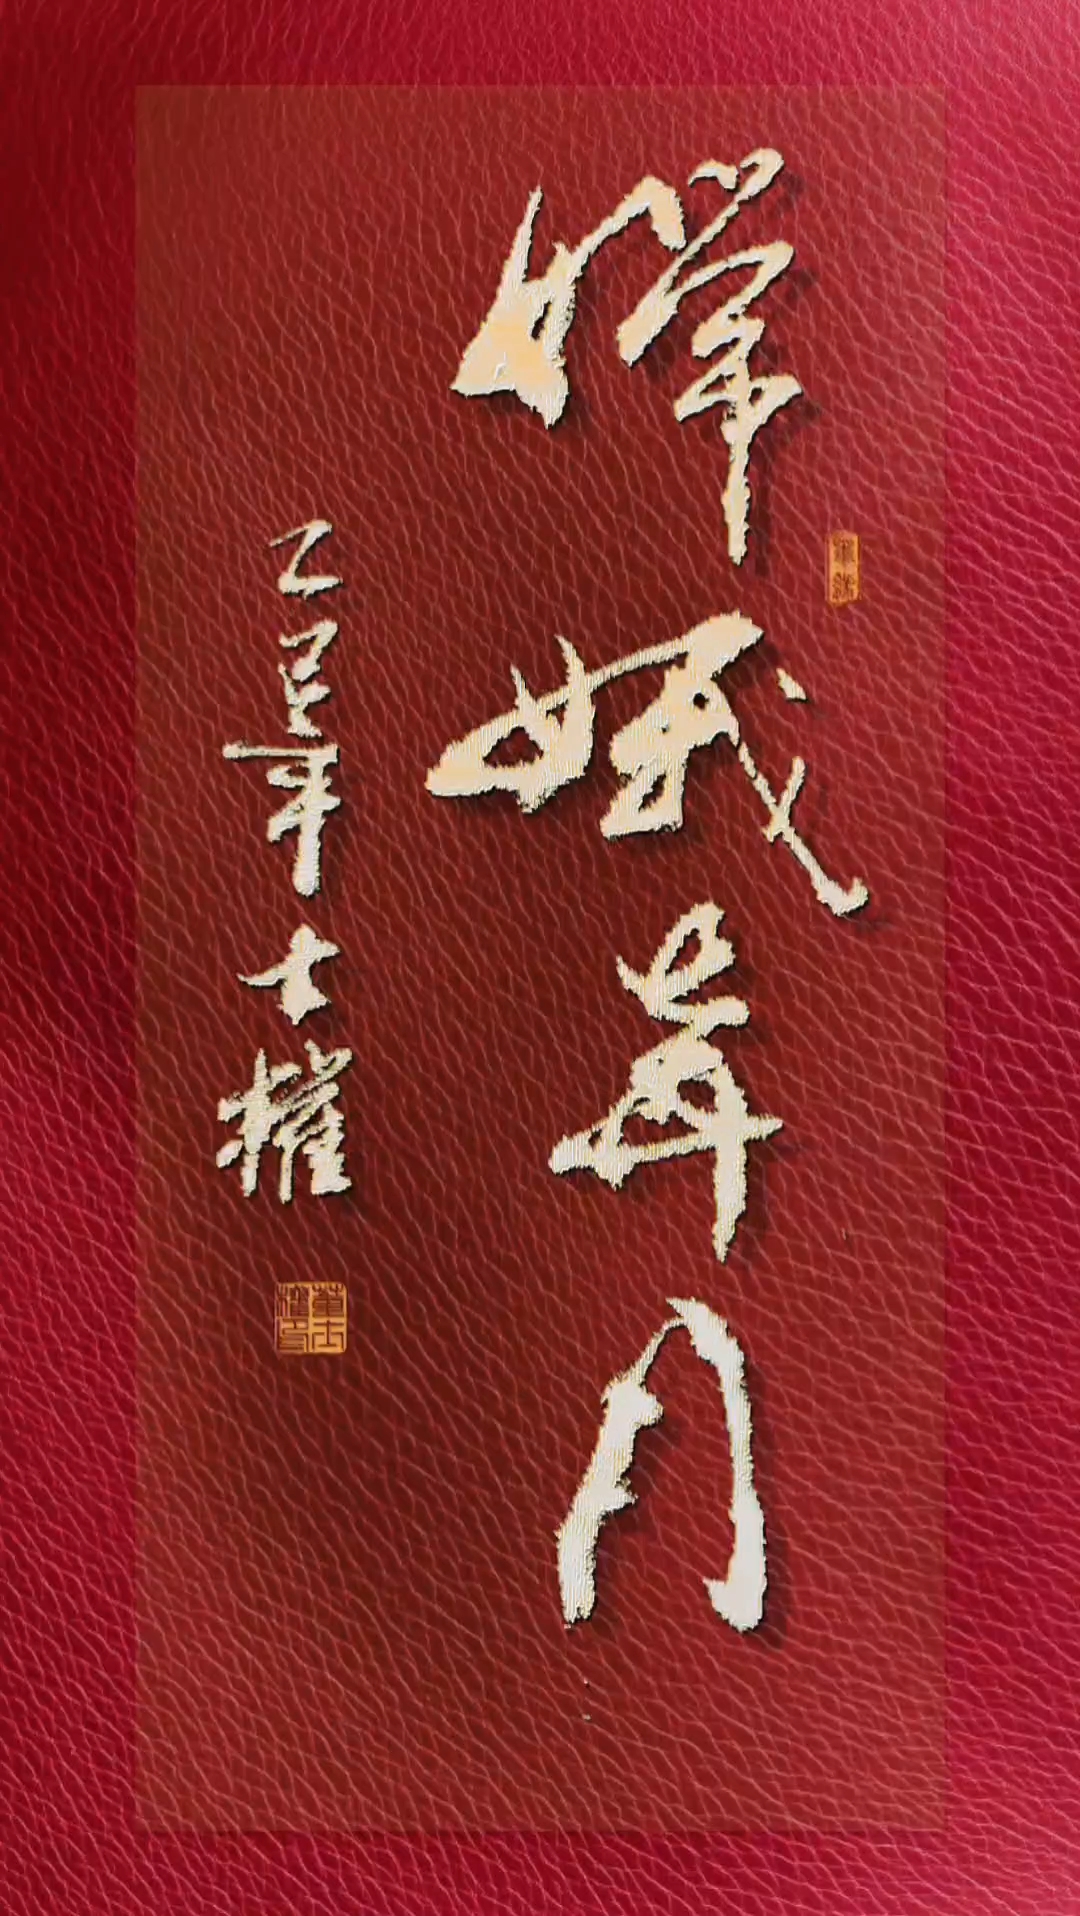 嫦娥奔月
乙巳年士權